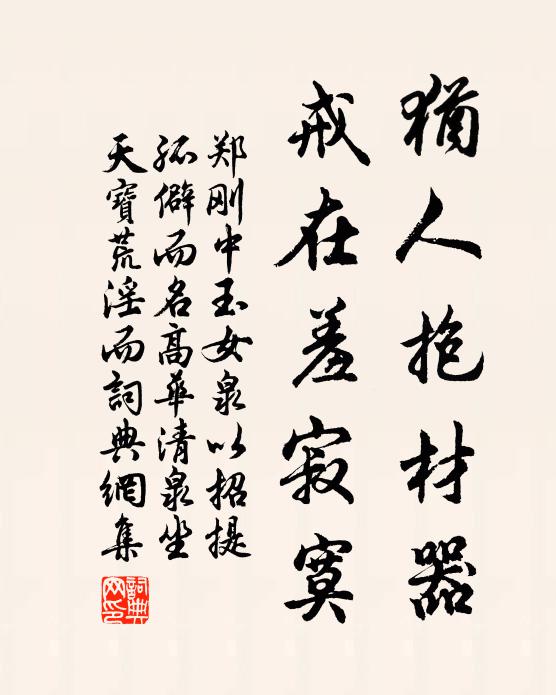 猶人抱材器
戒在羞寂寞
郑刚中玉女泉以招提
孤僻而名高華清泉坐
天寶荒淫而詞典網集
詞典網印